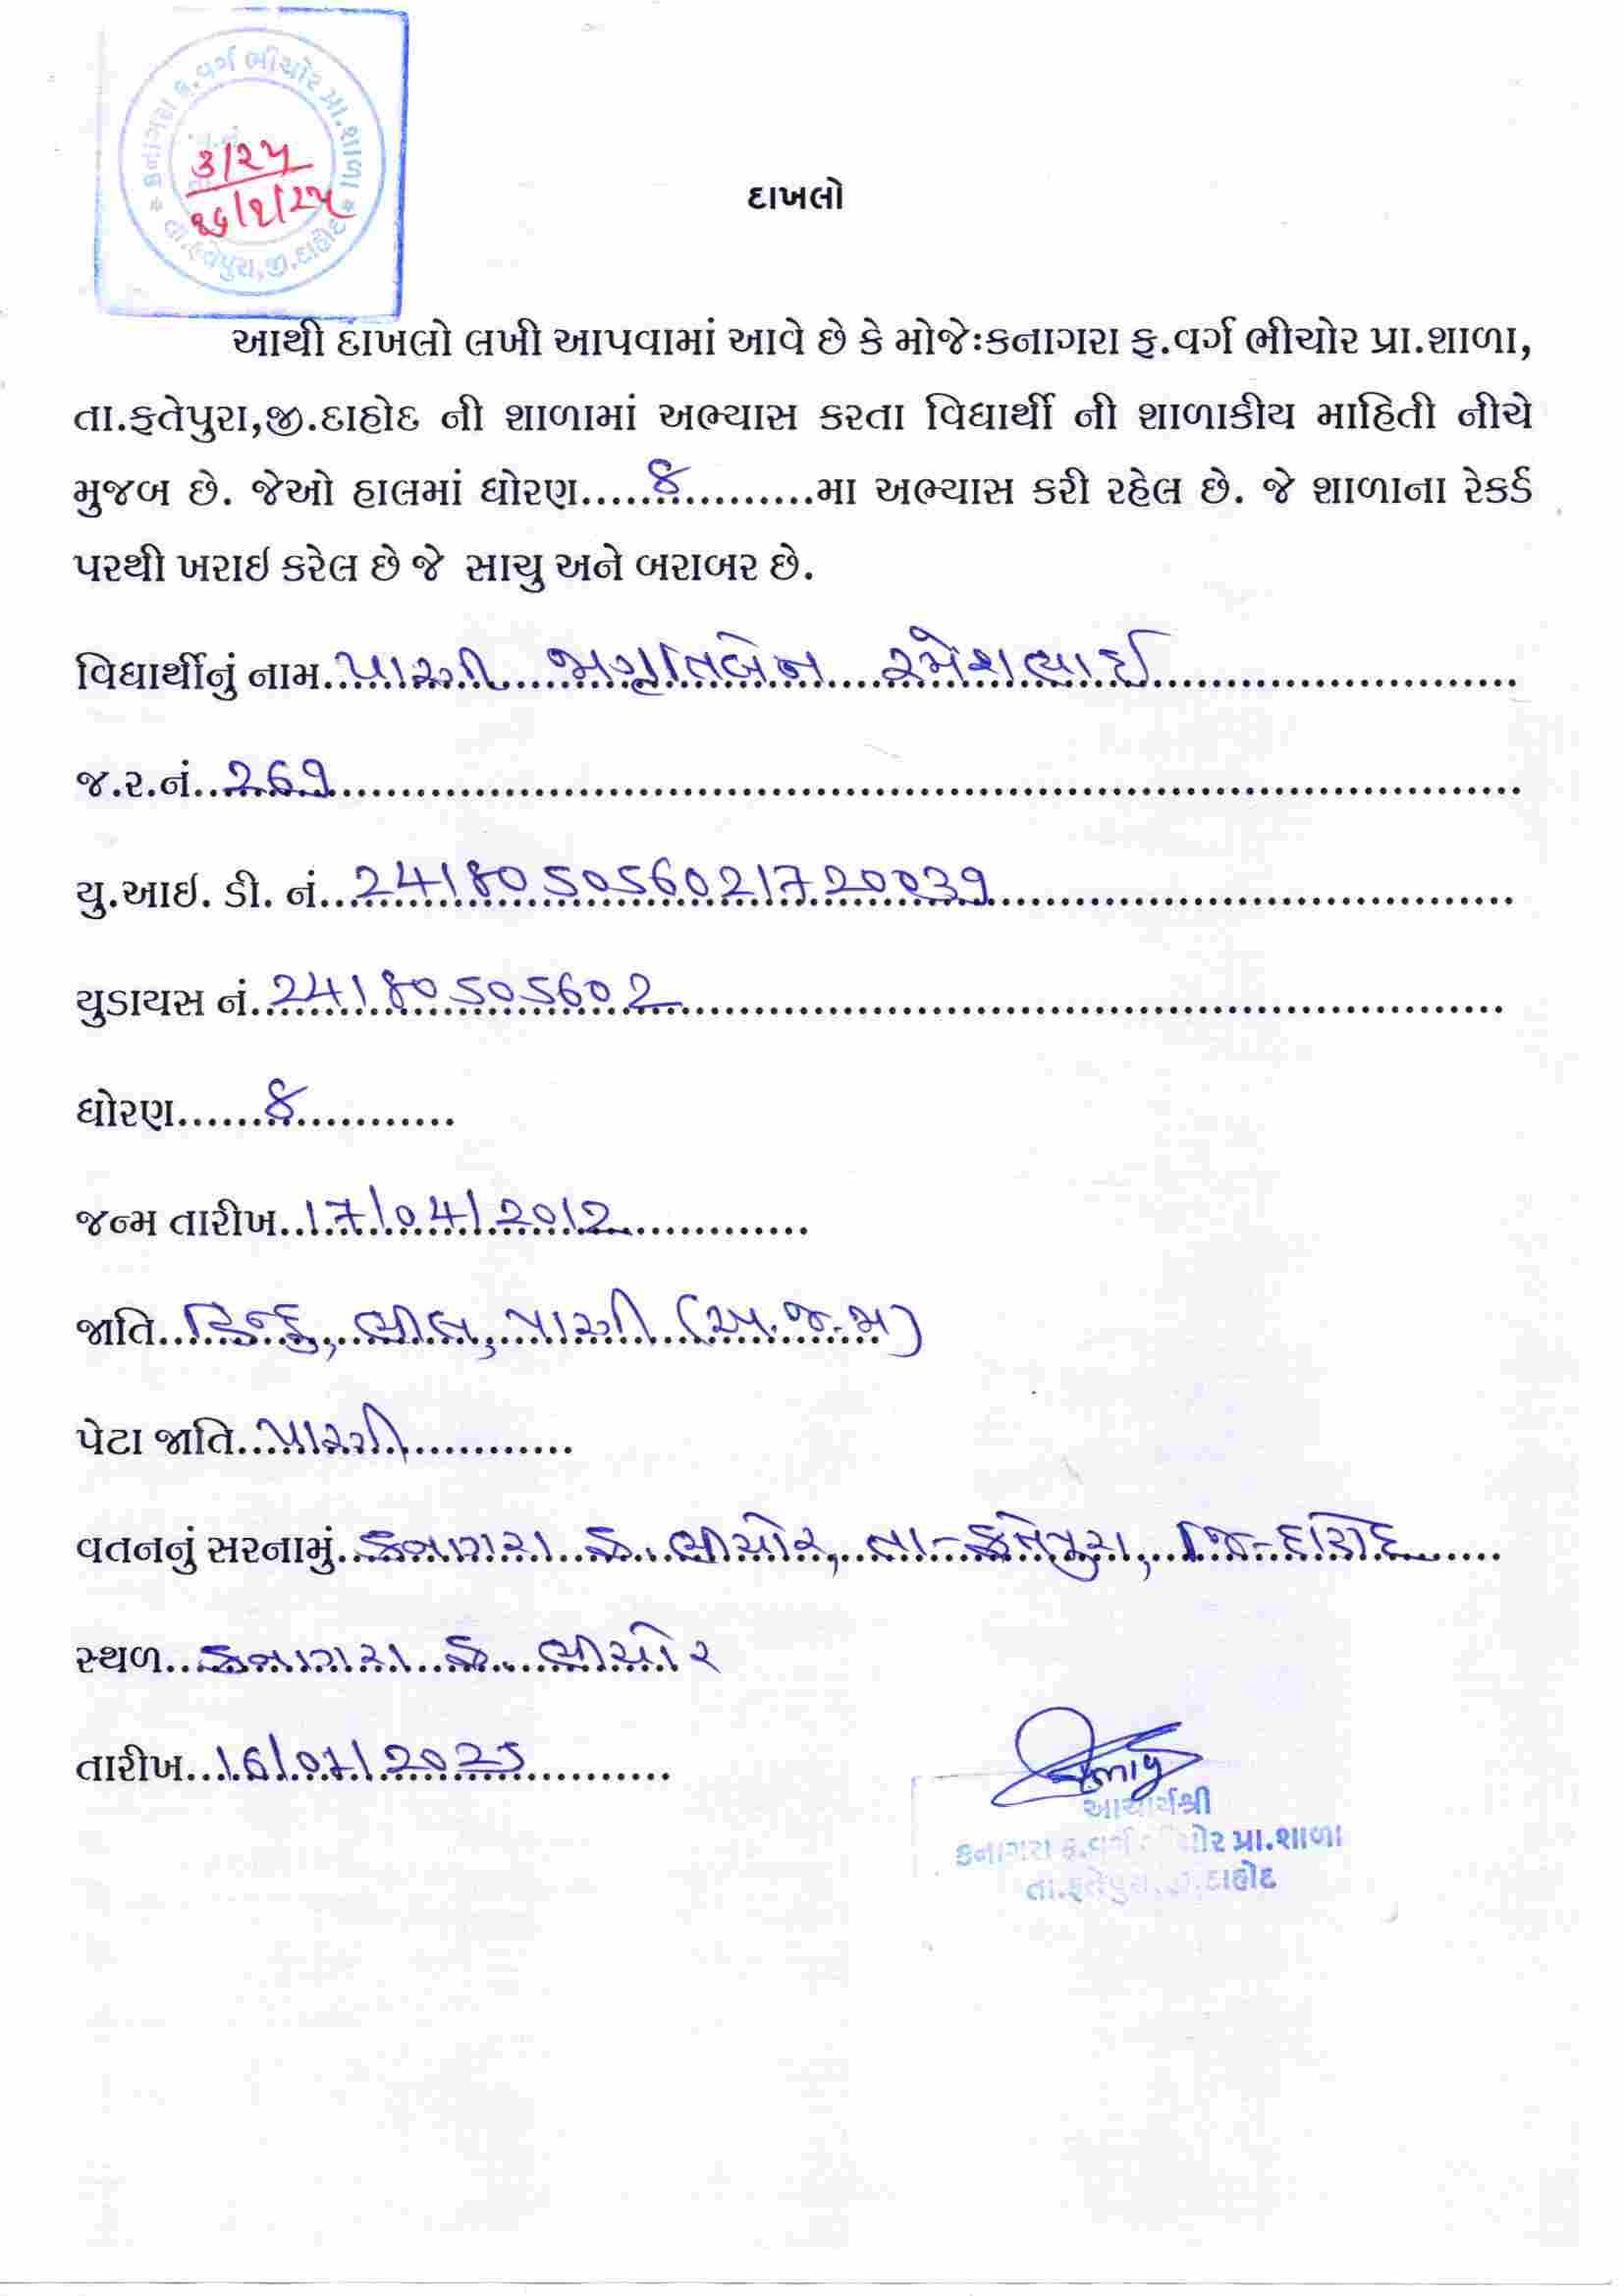 કનાગરા ક.વર્ગ ભીચોર પ્રા.શાળા
તા.ફતેપુરા,જી.દાહોદ
૩/૨૫
૧૬/૧/૨૫
દાખલો
આથી દાખલો લખી આપવામાં આવે છે કે મોજેઃકનાગરા ફ.વર્ગ ભીચોર પ્રા.શાળા,
તા.ફતેપુરા,જી.દાહોદ ની શાળામાં અભ્યાસ કરતા વિદ્યાર્થી ની શાળાકીય માહિતી નીચે
મુજબ છે. જેઓ હાલમાં ધોરણ.....૪..........મા અભ્યાસ કરી રહેલ છે. જે શાળાના રેકર્ડ
પરથી ખરાઇ કરેલ છે જે સાચુ અને બરાબર છે.
વિદ્યાર્થીનું નામ પારગી જાગૃતિબેન રમેશભાઈ
જ.ર.નં. 269
યુ.આઇ. ડી. નં. 241805056021720039
યુડાયસ નં. 24180505602
ધોરણ......૪...........
જન્મ તારીખ 17/04/2012
જાતિ હિન્દુ, ભીલ, પારગી (અ.જ.જા)
પેટા જાતિ પારગી
વતનનું સરનામું કનાગરા ક. ભીચોર, તા-ફતેપુરા, જિ-દાહોદ
સ્થળ કનાગરા ક. ભીચોર
તારીખ 16/01/2025
આચાર્યશ્રી
કનાગરા ક.વર્ગ ભીચોર પ્રા.શાળા
તા.ફતેપુરા,જી.દાહોદ